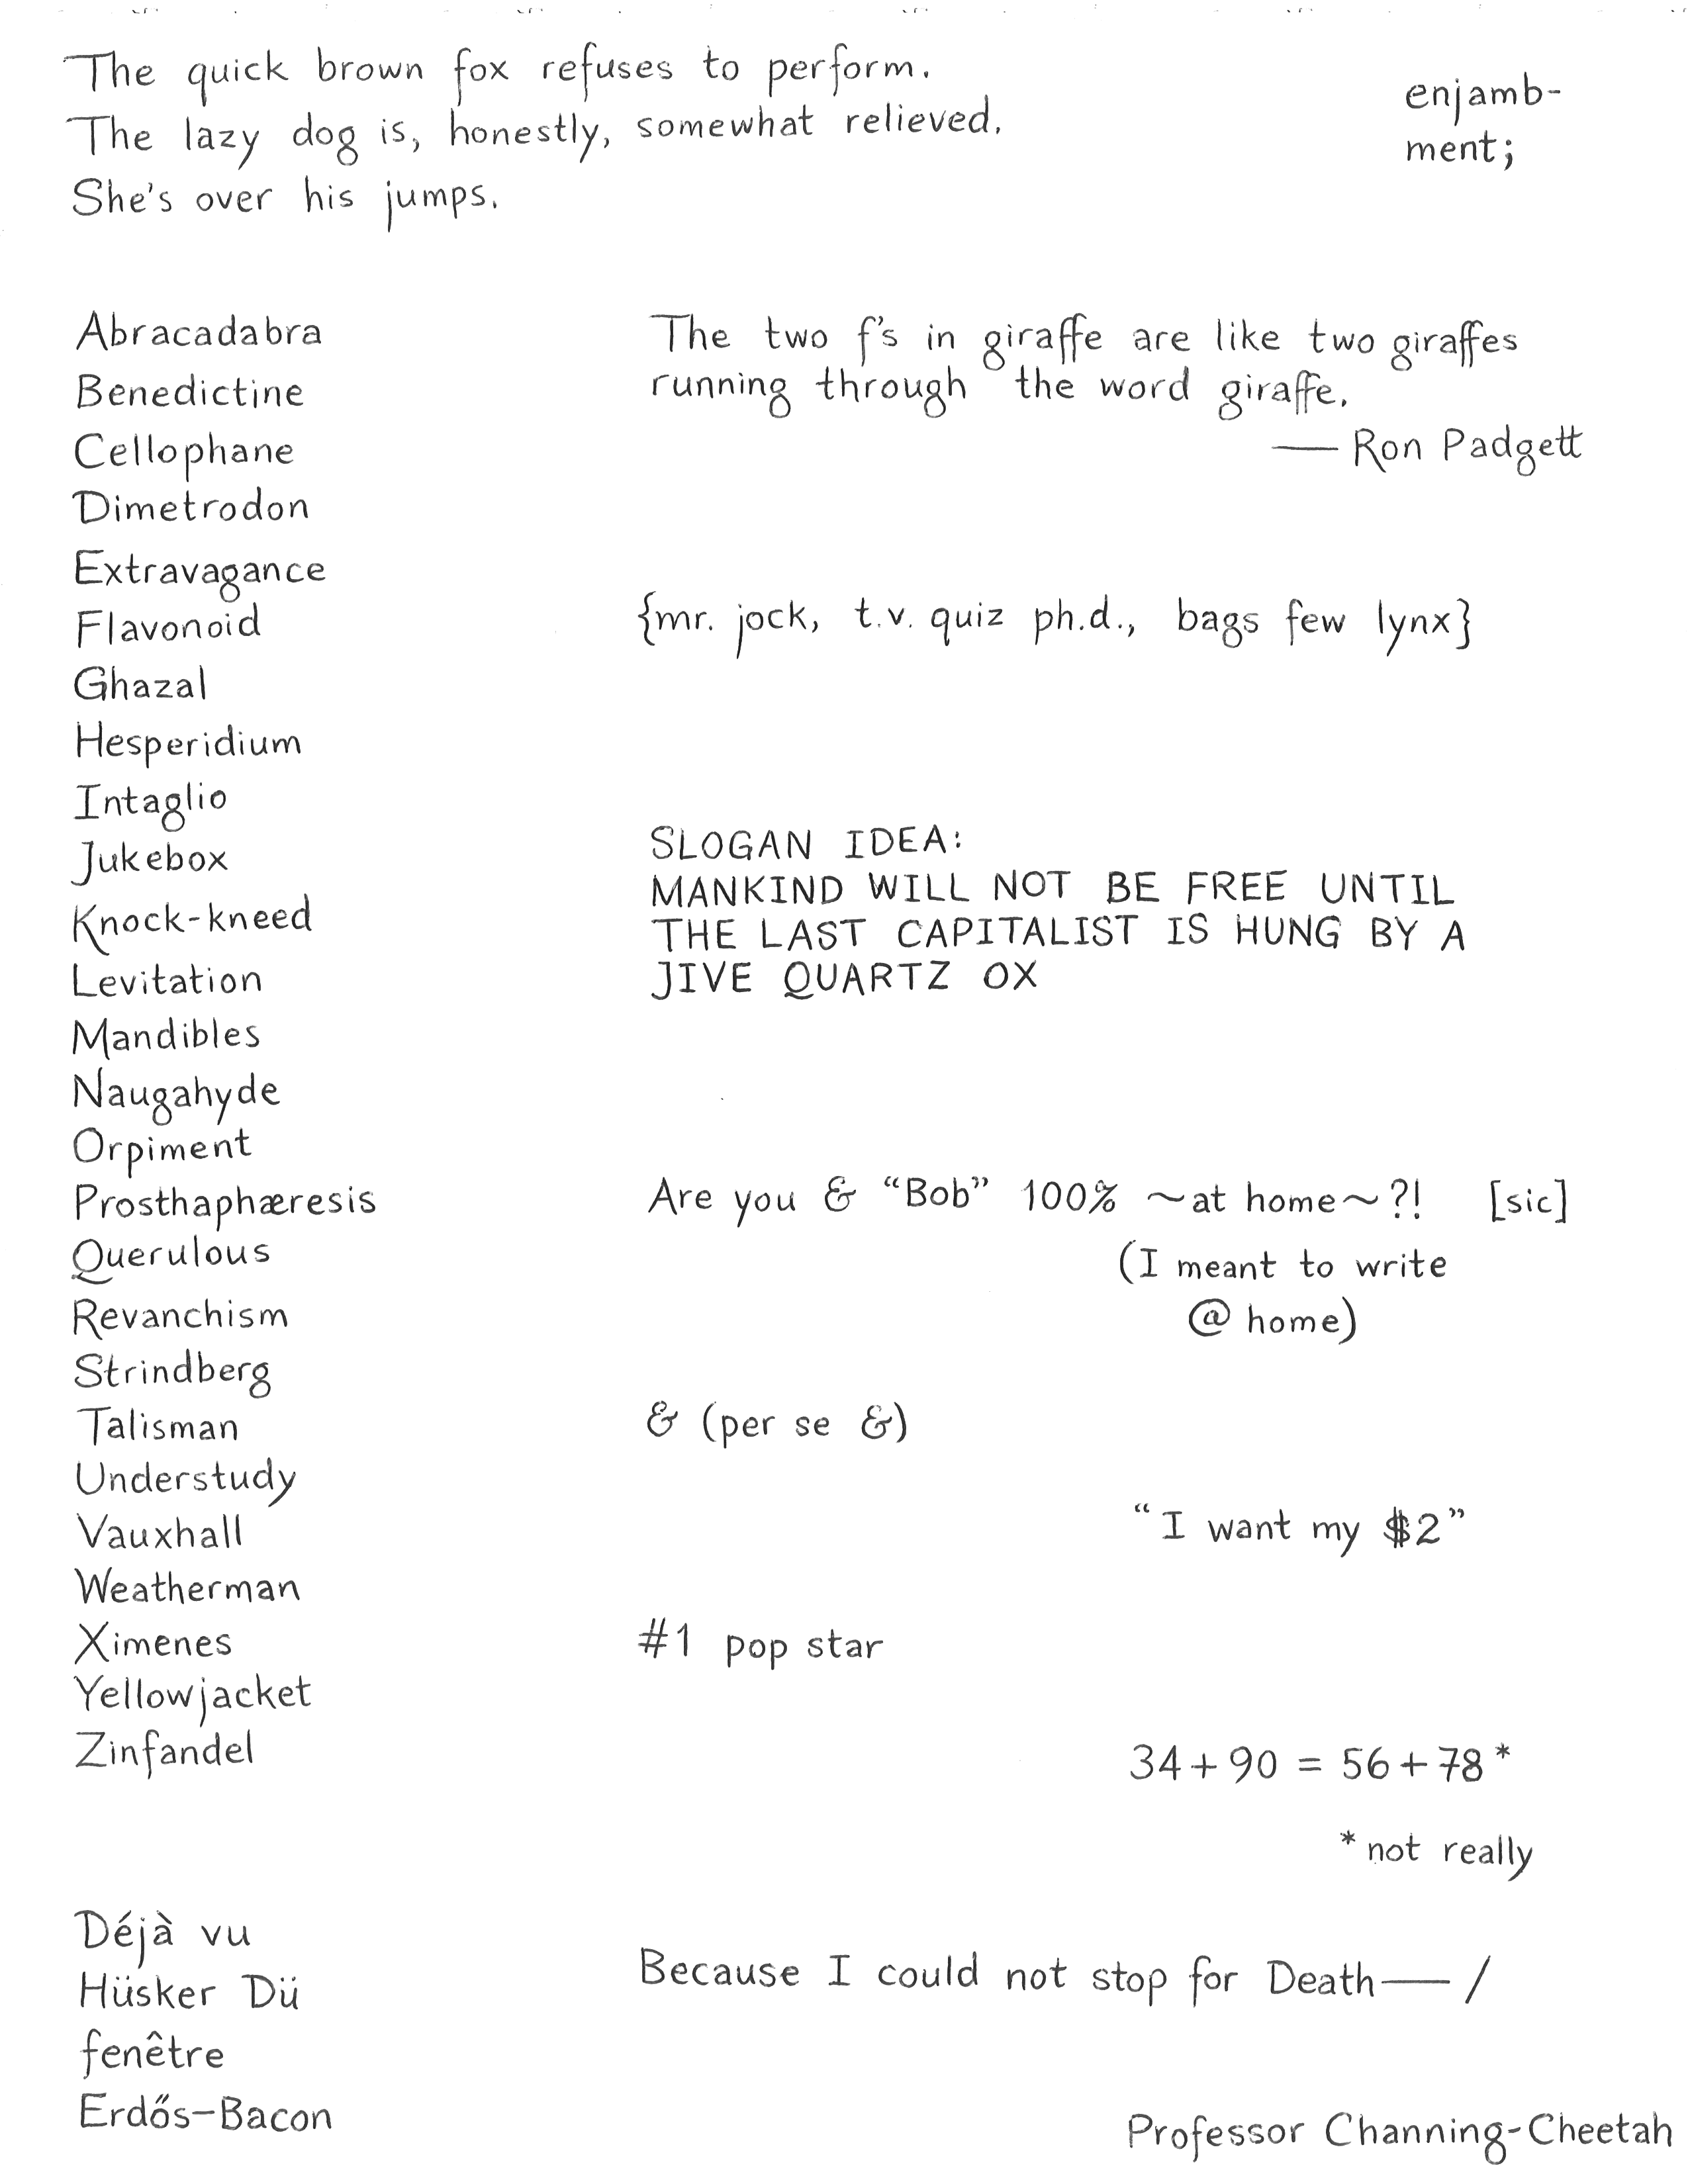 The quick brown fox refuses to perform.
The lazy dog is, honestly, somewhat relieved.
She's over his jumps.
enjamb-
ment;
Abracadabra
Benedictine
Cellophane
Dimetrodon
Extravagance
Flavonoid
Ghazal
Hesperidium
Intaglio
Jukebox
Knock-kneed
Levitation
Mandibles
Naugahyde
Orpiment
Prosthaphæresis
Querulous
Revanchism
Strindberg
Talisman
Understudy
Vauxhall
Weatherman
Ximenes
Yellowjacket
Zinfandel
Déjà vu
Hüsker Dü
fenêtre
Erdős-Bacon
The two f's in giraffe are like two giraffes
running through the word giraffe.
— Ron Padgett
{mr. jock, t.v. quiz ph.d., bags few lynx}
SLOGAN IDEA:
MANKIND WILL NOT BE FREE UNTIL
THE LAST CAPITALIST IS HUNG BY A
JIVE QUARTZ OX
Are you & “Bob” 100% ~at home~?! [sic]
(I meant to write
@ home)
& (per se &)
“I want my $2”
#1 pop star
34+90 = 56+78*
*not really
Because I could not stop for Death— /
Professor Channing-Cheetah